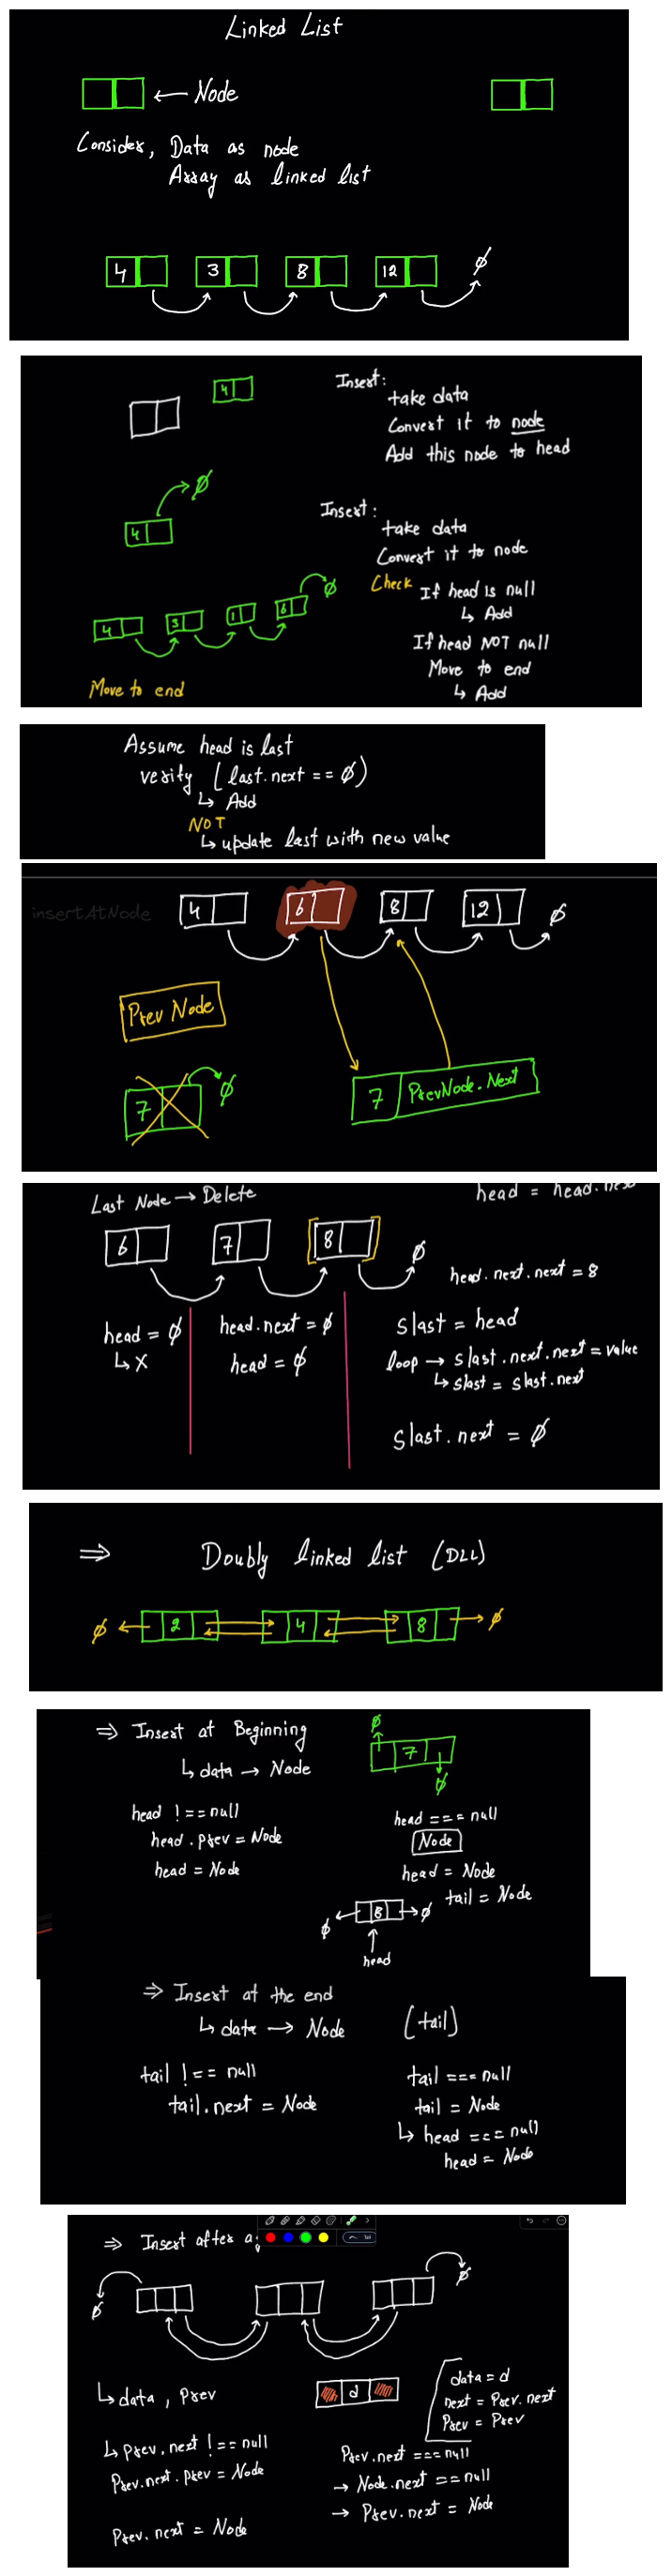 Linked List
← Node
Consider, Data as node
Array as linked list
4 3 8 12 ∅
4
Insert:
take data
Convert it to node
Add this node to head
∅
4
Insert:
take data
Convert it to node
Check If head is null
↳ Add
If head NOT null
Move to end
↳ Add
4 3 1 6 ∅
Move to end
Assume head is last
verify (last.next == ∅)
↳ Add
NOT
↳ update last with new value
insertAtNode
4 6 8 12 ∅
Prev Node
7 ∅
7 PrevNode.Next
Last Node → Delete
head = head.next
6 7 8 ∅
head.next.next = 8
head = ∅
↳ X
head.next = ∅
head = ∅
slast = head
loop → slast.next.next = value
↳ slast = slast.next
slast.next = ∅
⇒ Doubly linked list (DLL)
∅ 2 4 8 ∅
⇒ Insert at Beginning
↳ data → Node
∅
7
∅
head !== null
head.prev = Node
head = Node
head === null
Node
head = Node
tail = Node
∅ 8 ∅
head
⇒ Insert at the end
↳ data → Node (tail)
tail !== null
tail.next = Node
tail === null
tail = Node
↳ head === null
head = Node
⇒ Insert after a
∅ ∅
↳ data, prev
d
data = d
next = Prev.next
Prev = Prev
↳ prev.next !== null
Prev.next.prev = Node
Prev.next = Node
Prev.next === null
→ Node.next == null
→ Prev.next = Node